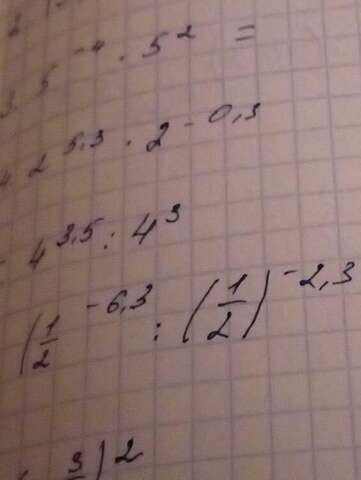 3. 5^-4 · 5^2 =
4. 2^5,3 · 2^-0,3
4^3,5 : 4^3
(1/2^-6,3 : (1/2)^-2,3
3/ )^2